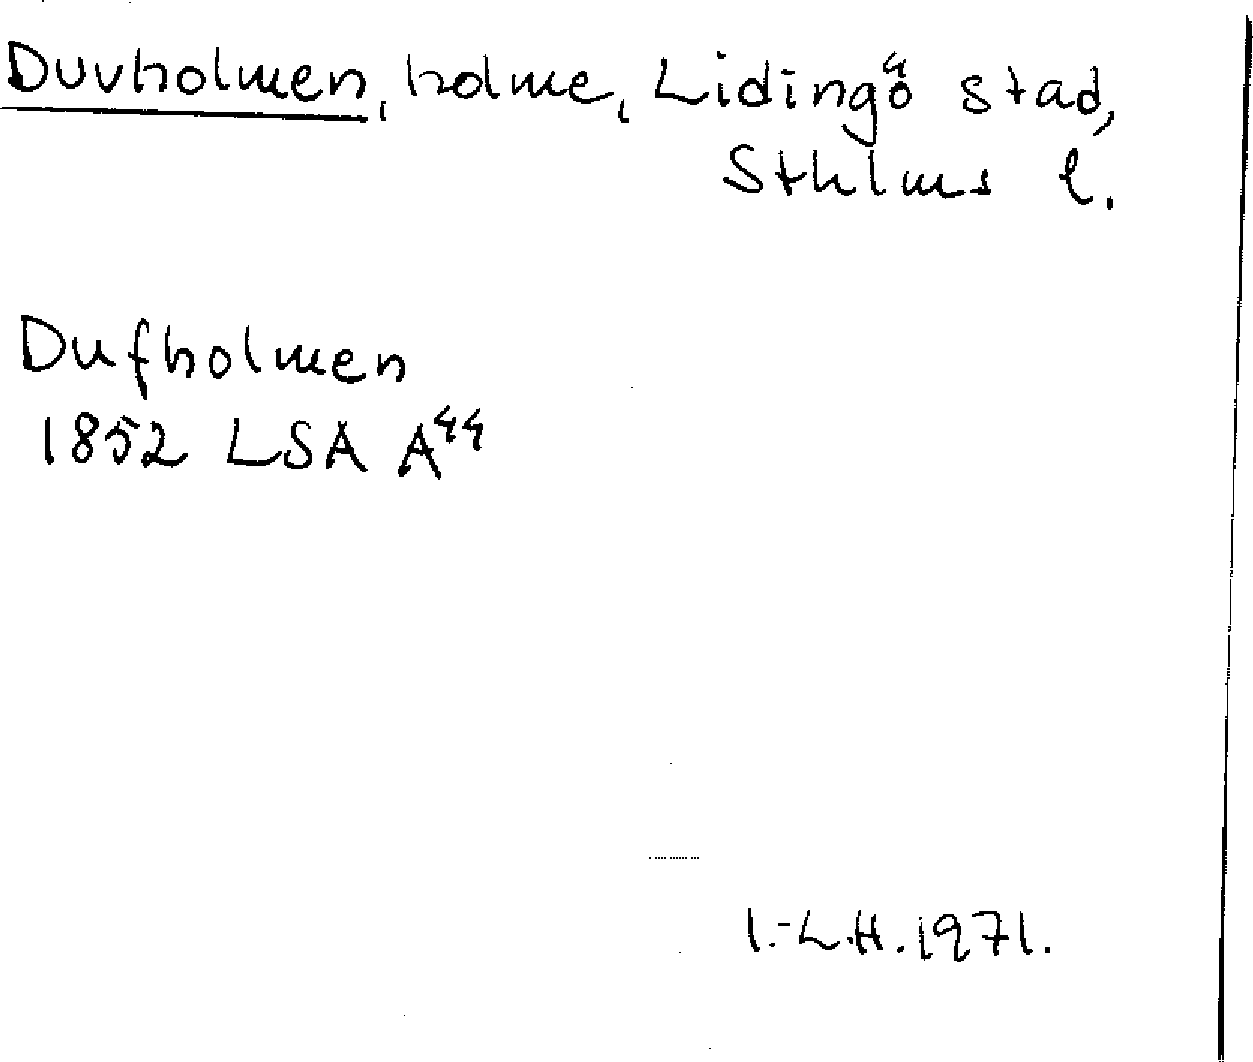 Duvholmen, holme, Lidingö stad,
Sthlms l.
Dufholmen
1852 LSA A⁴⁴
I.-L.H. 1971.